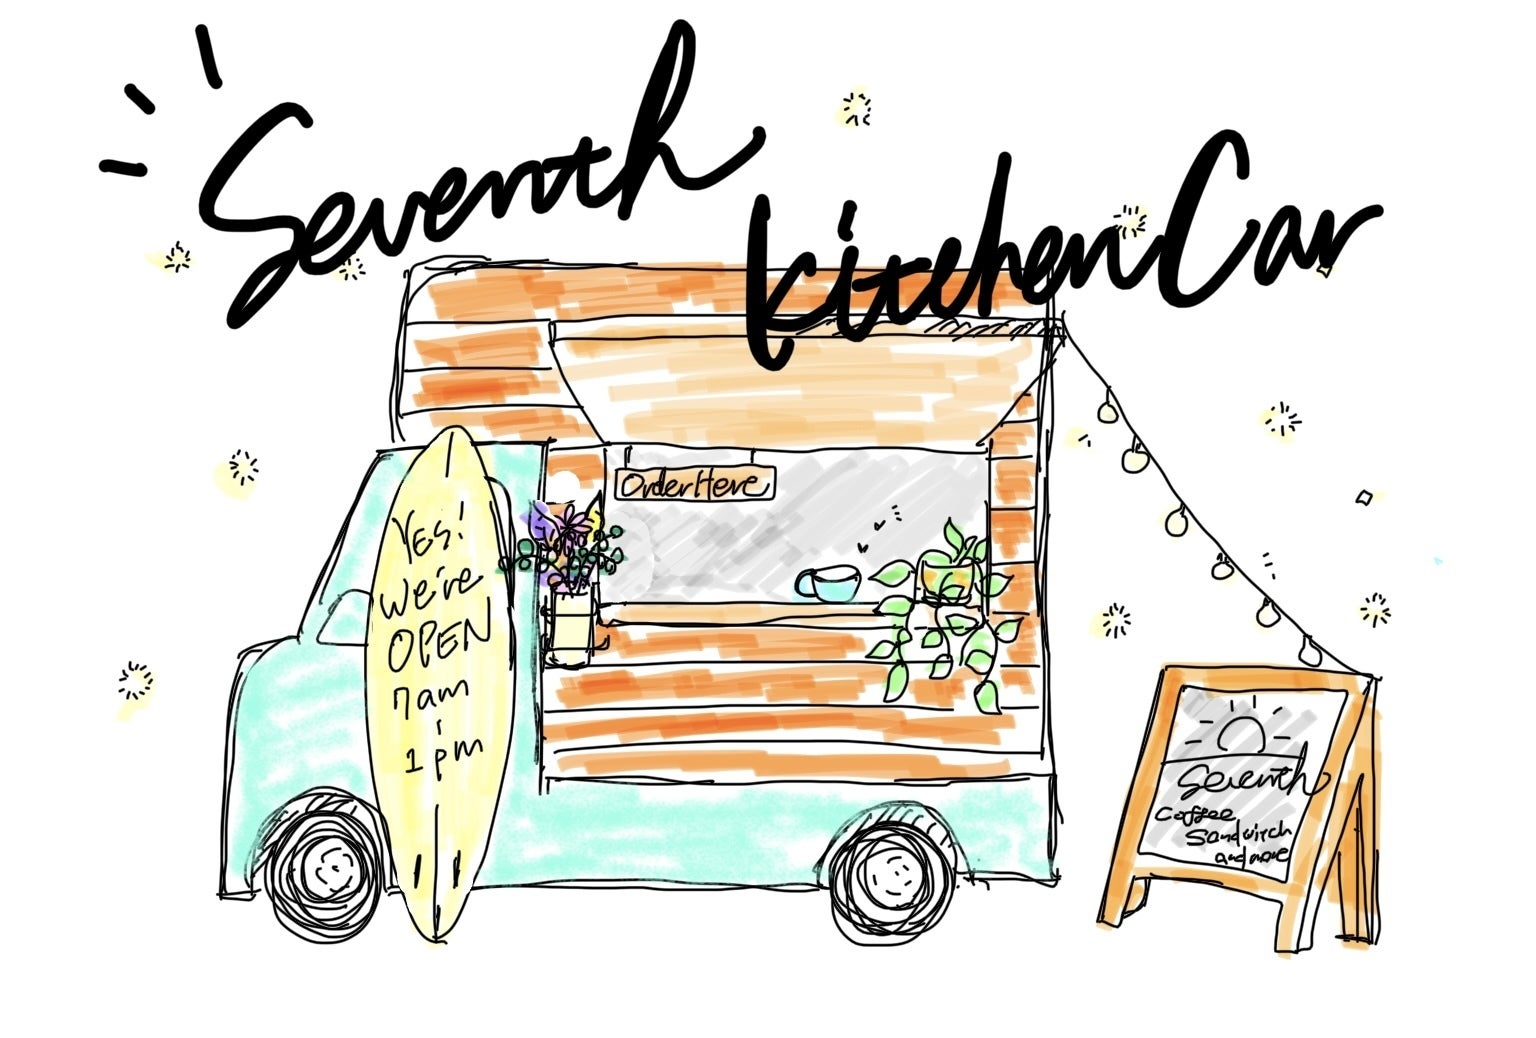 Seventh
kitchen Car
Order Here
YES!
we're
OPEN
7am
1pm
Seventh
Coffee
Sandwitch
and more